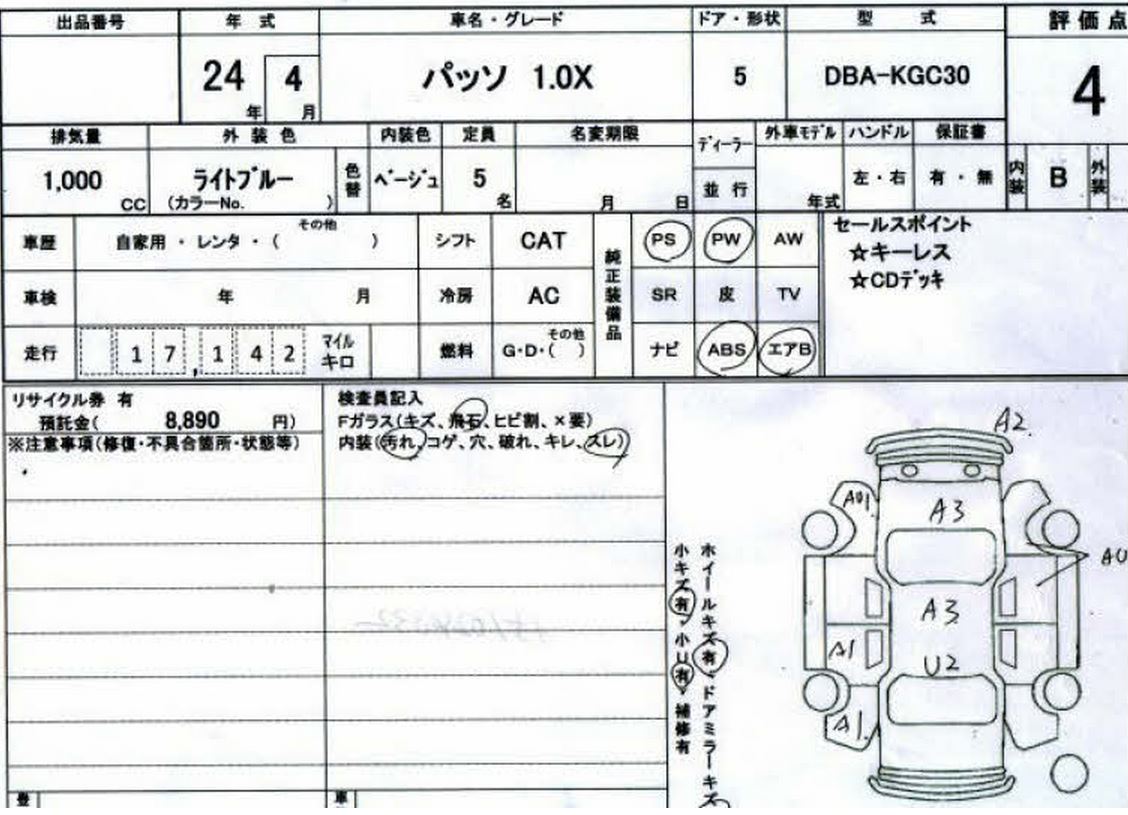 出品番号 年 式 車名・グレード ドア・形状 型 式 評価点
24年 4月 パッソ 1.0X 5 DBA-KGC30 4
排気量 外装色 内装色 定員 名変期限 ディーラー 外車モデル ハンドル 保証書
1,000CC ライトブルー 色替 ベージュ 5名 月 日 並行 年式 左・右 有・無 内装 B 外装
(カラーNo. )
車歴 自家用・レンタ・(その他 ) シフト CAT 純正装備品 PS PW AW
車検 年 月 冷房 AC SR 皮 TV
走行 17,142 マイル キロ 燃料 G・D・(その他 ) ナビ ABS エアB
セールスポイント
☆キーレス
☆CDデッキ
リサイクル券 有
預託金( 8,890 円)
※注意事項(修復・不具合箇所・状態等)
検査員記入
Fガラス(キズ、飛石、ヒビ割、×要)
内装(汚れ、コゲ、穴、破れ、キレ、スレ)
ホイールキズ有、ドアミラーキズ
小キズ有、小U有、補修有
A2
A3
AU1
AU
A3
A1
U2
A1
車